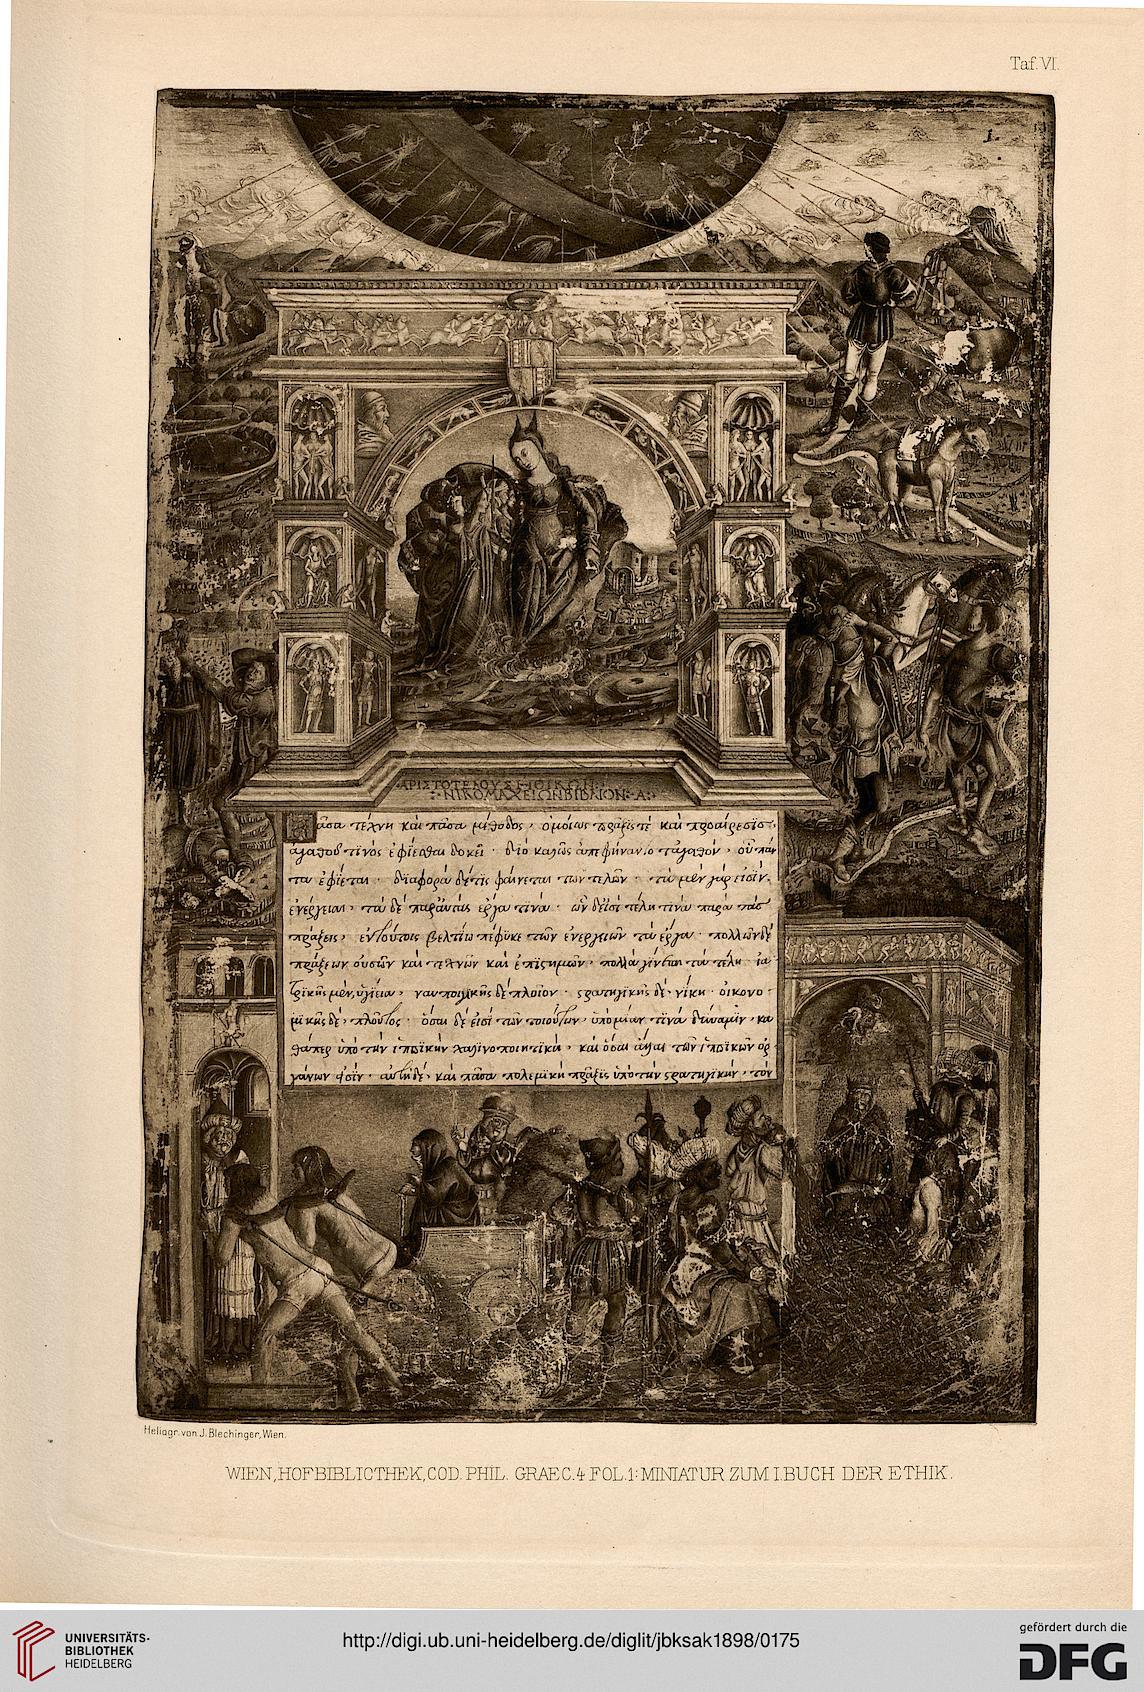 Taf. VI.
ΑΡΙΣΤΟΤΕΛΟΥΣ ΗΘΙΚΩΝ
ΝΙΚΟΜΑΧΕΙΩΝ ΒΙΒΛΙΟΝ· Α:
Πᾶσα τέχνη καὶ πᾶσα μέθοδος, ὁμοίως πρᾶξίς τε καὶ προαίρεσις,
ἀγαθοῦ τινὸς ἐφίεσθαι δοκεῖ · διὸ καλῶς ἀπεφήναντο τἀγαθὸν, οὗ πάν
τα ἐφίεται · διαφορὰ δέ τις φαίνεται τῶν τελῶν · τὰ μὲν γάρ εἰσιν
ἐνέργειαι, τὰ δὲ παρ' αὐτὰς ἔργα τινά · ὧν δ' εἰσὶ τέλη τινὰ παρὰ τὰς
πράξεις, ἐν τούτοις βελτίω πέφυκε τῶν ἐνεργειῶν τὰ ἔργα · πολλῶν δὲ
πράξεων οὐσῶν καὶ τεχνῶν καὶ ἐπιστημῶν, πολλὰ γίνεται τὰ τέλη · ἰα
τρικῆς μὲν, ὑγίεια, ναυπηγικῆς δὲ πλοῖον · στρατηγικῆς δὲ νίκη · οἰκονο
μικῆς δὲ, πλοῦτος · ὅσαι δέ εἰσι τῶν τοιούτων, ὑπὸ μίαν τινὰ δύναμιν, κα
θάπερ ὑπὸ τὴν ἱππικὴν χαλινοποιητικὴ, καὶ ὅσαι ἄλλαι τῶν ἱππικῶν ὀρ
γάνων εἰσὶν · αὕτη δὲ, καὶ πᾶσα πολεμικὴ πρᾶξις ὑπὸ τὴν στρατηγικὴν, τὸν
Heliogr. von J. Blechinger, Wien.
WIEN, HOFBIBLIOTHEK, COD. PHIL. GRAEC. 4 FOL. 1: MINIATUR ZUM I. BUCH DER ETHIK.
UNIVERSITÄTS-
BIBLIOTHEK
HEIDELBERG
http://digi.ub.uni-heidelberg.de/diglit/jbksak1898/0175
gefördert durch die
DFG